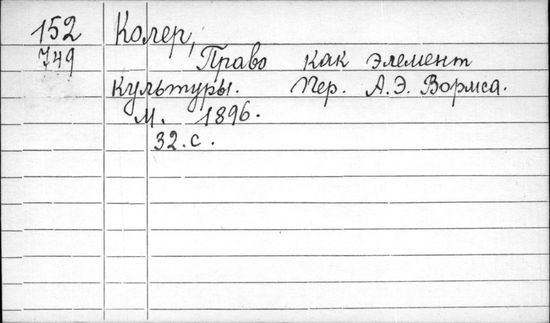 152 Колер,
749 Право как элемент
культуры. Пер. А.Э. Вормса.
М. 1896.
32. с.